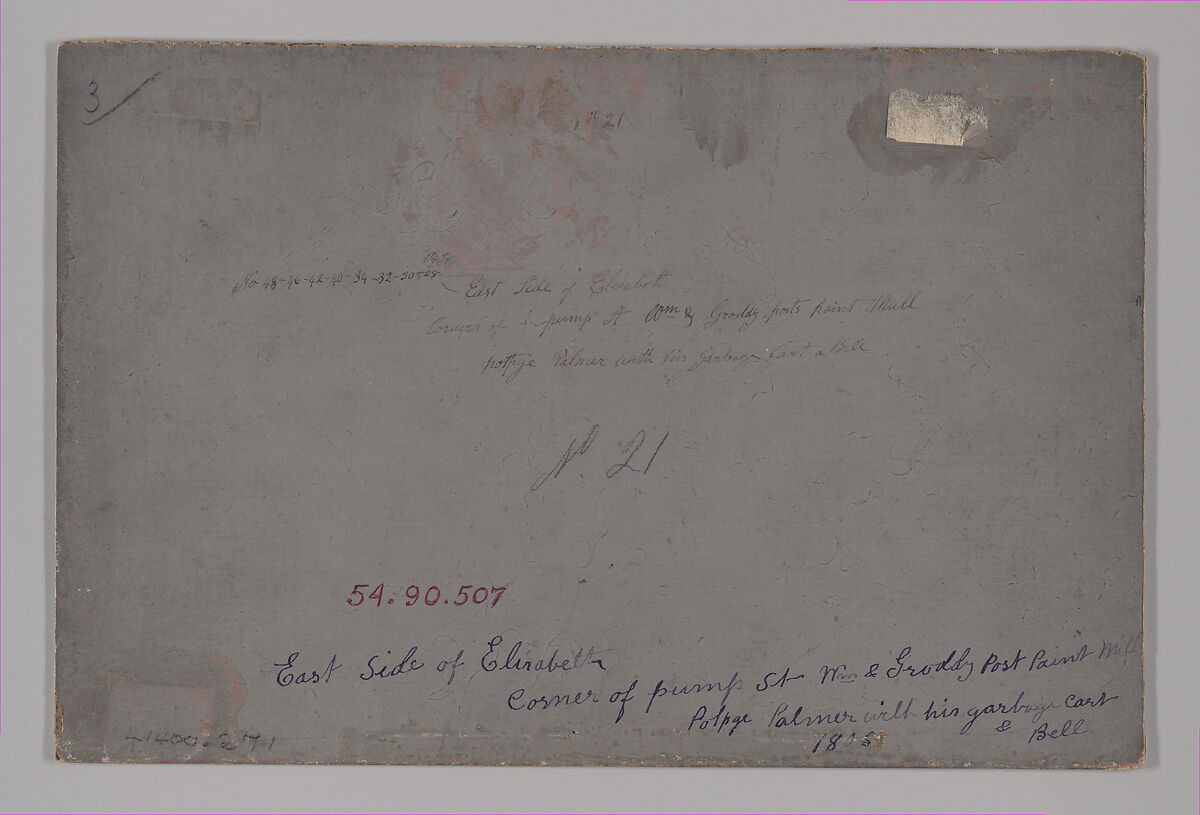 3
21
No 48-46-42-40-34-32-30-28
East Side of Elisabett
Corner of pump St Wm & Groddy posts paint Mill
potpye Palmer with his Garbage Cart & Bell
No 21
54.90.507
East Side of Elisabett
Corner of pump St Wm & Groddy Post Paint Mill
Polpye Palmer with his garbage cart
& Bell
180
L1400-271